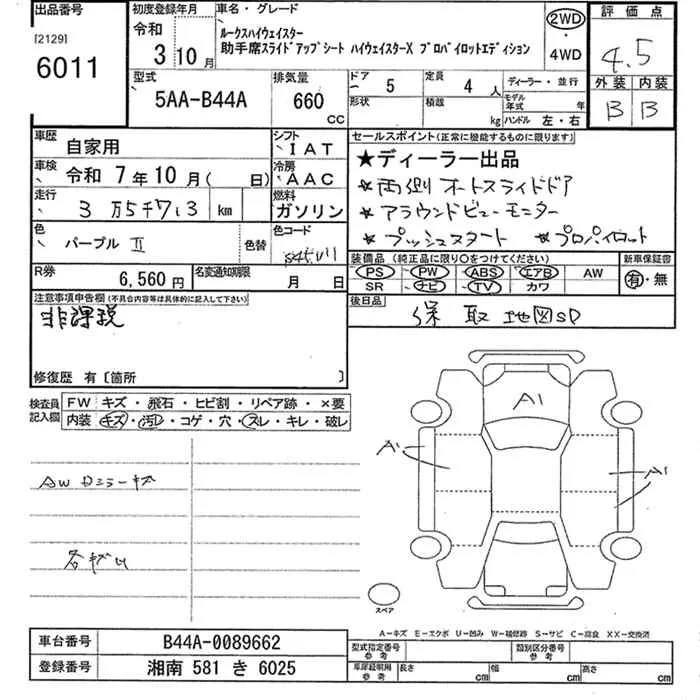 出品番号
[2129]
6011
初度登録年月
令和
3 10月
車名・グレード
ルークスハイウェイスター
助手席スライドアップシート ハイウェイスターX プロパイロットエディション
2WD
・
4WD
評価点
4.5
外装 内装
B B
型式
5AA-B44A
排気量
660
CC
ドア 5
形状
定員 4 人
積載 kg
ディーラー・並行
モデル年式 年
ハンドル 左・右
車歴 自家用
車検 令和 7年10月( 日)
走行 3万5千713 km
色 パープルⅡ 色替
シフト IAT
冷房 AAC
燃料 ガソリン
色コード
R券 6,560円
名変通知期限 月 日
セールスポイント(正常に機能するものに限ります)
★ディーラー出品
★両側オートスライドドア
★アラウンドビューモニター
★プッシュスタート ★プロパイロット
装備品 (純正品に限り○をつけてください)
PS PW ABS エアB AW
SR ナビ TV カワ
新車保証書
有・無
後日品 保 取 地図SD
注意事項申告欄(不具合内容等は具体的に記入して下さい)
非課税
修復歴 有〔箇所 〕
検査員記入欄
FW キズ・飛石・ヒビ割・リペア跡・×要
内装 キズ・汚レ・コゲ・穴・スレ・キレ・破レ
AW ドミラーキズ
A1
A1
A1
スペア
A-キズ E-エクボ U-凹み W-補修跡 S-サビ C-腐食 XX-交換済
車台番号 B44A-0089662
登録番号 湘南 581 き 6025
型式指定番号 参考
類別区分番号 参考
車庫証明用 参考
長さ cm
幅 cm
高さ cm